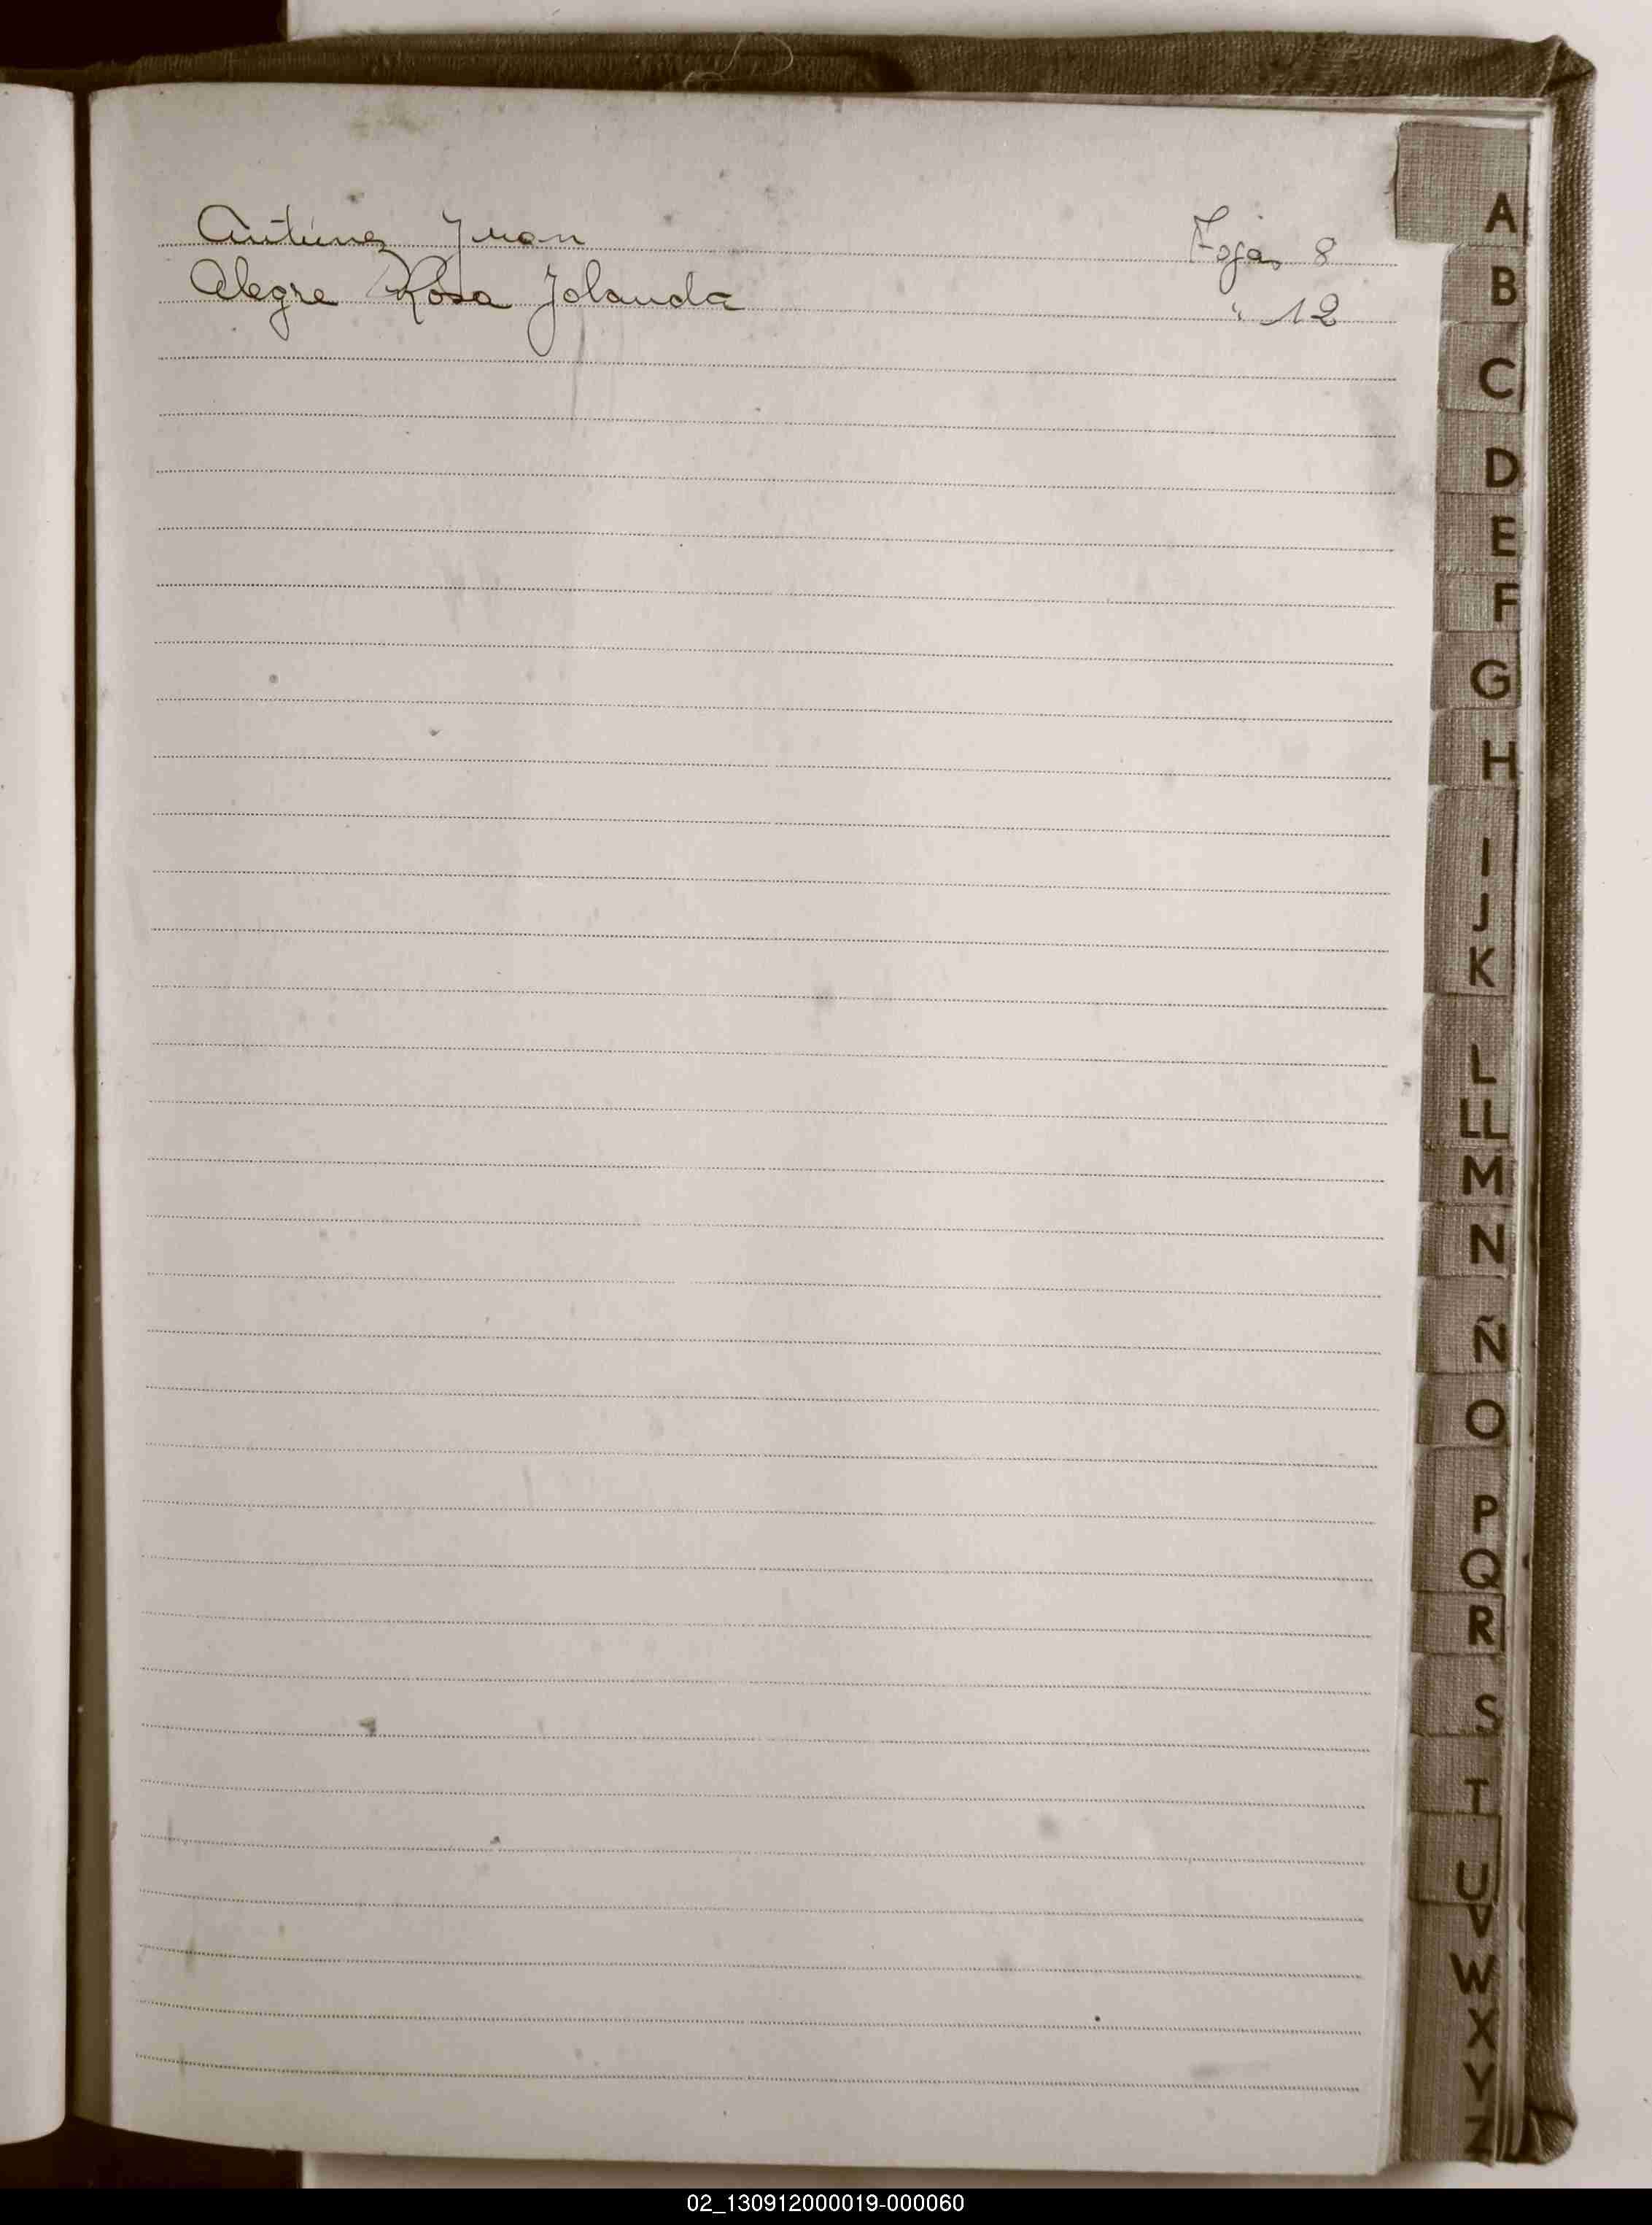 Antúnez Juan Foja 8
Alegre Rosa Jolanda " 12
A
B
C
D
E
F
G
H
I
J
K
L
LL
M
N
Ñ
O
P
Q
R
S
T
U
V
W
X
Y
Z
02_130912000019-000060